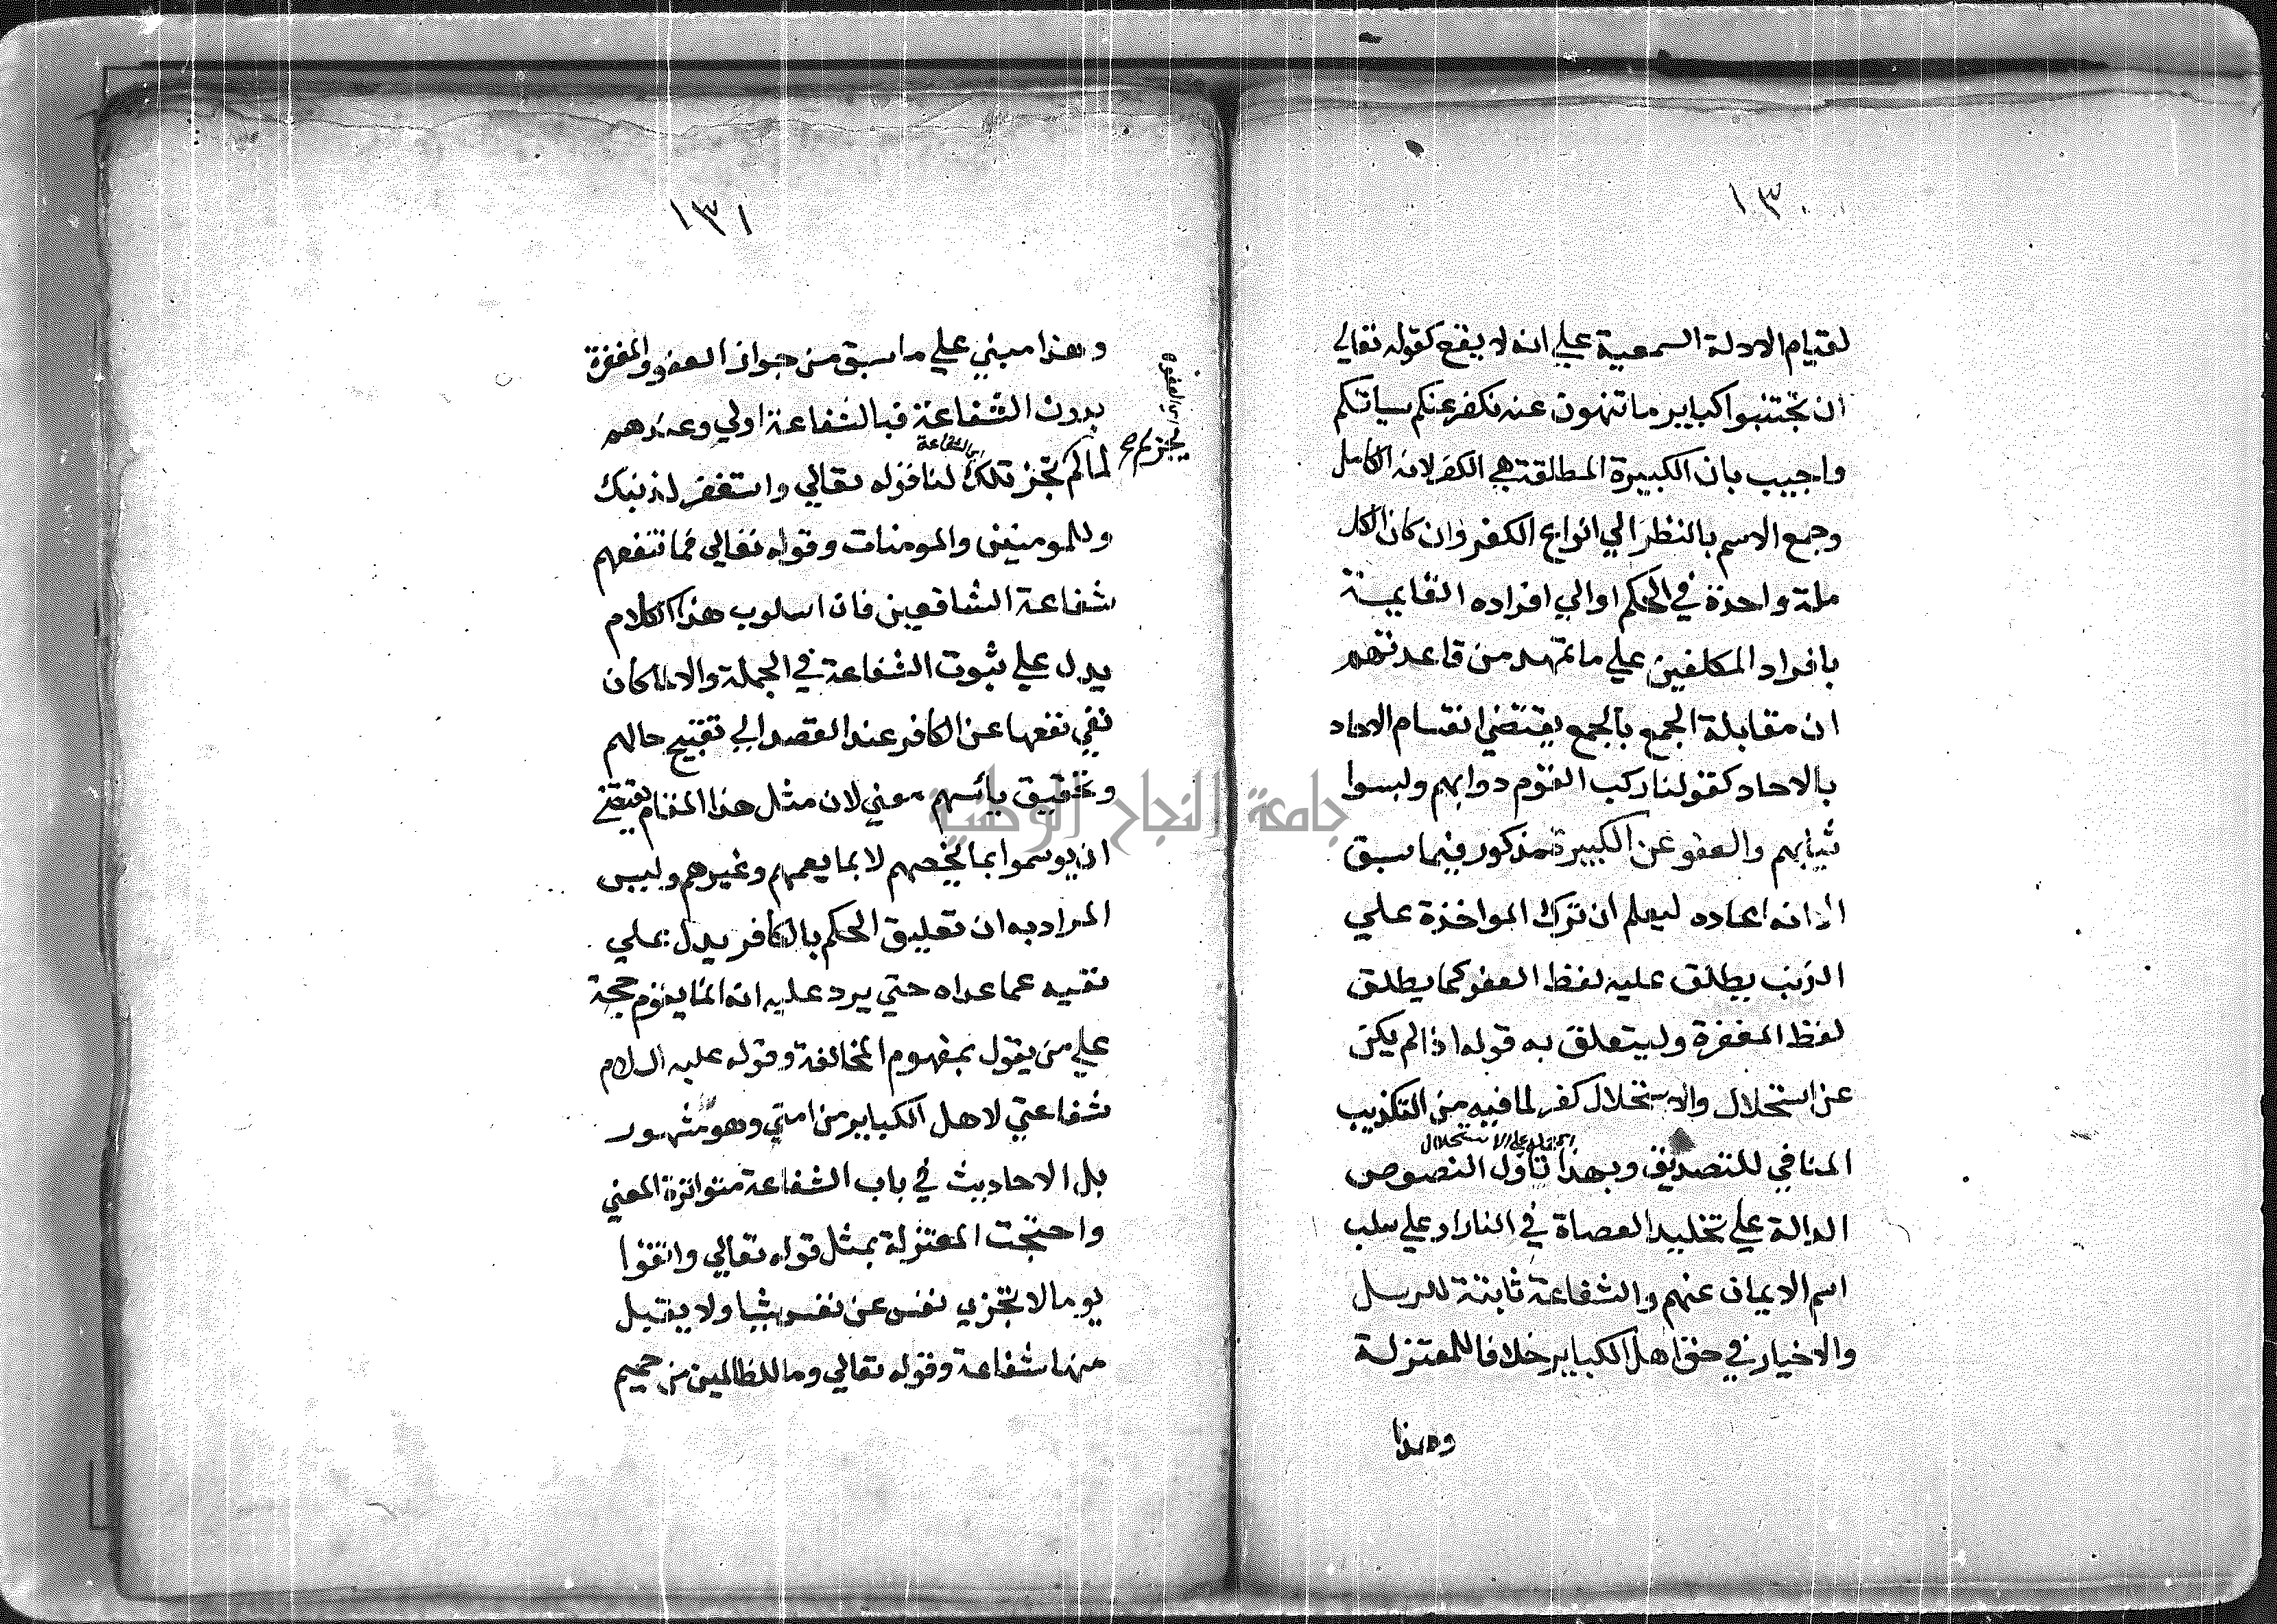 ١٣٠
لقيام الادلة السمعية علي انه لا يقع كقوله تعالي
ان تجتنبوا كباير ما تنهون عنه نكفر عنكم سياتكم
واجيب بان الكبيرة المطلقة هي الكفر لانه الكامل
وجمع الاسم بالنظر الي انواع الكفر وان كان الكل
ملة واحدة في الحكم او الي افراده القايمة
بافراد المكلفين علي ما تمهد من قاعدتهم
ان مقابلة الجمع بالجمع يقتضي انقسام الاحاد
بالاحاد كقولنا ركب القوم دوابهم ولبسوا
ثيابهم والعفو عن الكبيرة مذكور فيما سبق
الا انه اعاده ليعلم ان ترك المواخذة علي
الذنب يطلق عليه لفظ العفو كما يطلق
لفظ المغفرة وليتعلق به قوله اذا لم يكن
عن استحلال والاستحلال كفر لما فيه من التكذيب
علي الاستحلال
المنافي للتصديق وبهذا تاول النصوص
الدالة علي تخليد العصاة في النار او علي سلب
اسم الايمان عنهم والشفاعة ثابتة للرسل
والاخيار في حق اهل الكباير خلافا للمعتزلة
وهذا
١٣١
وهذا مبني علي ما سبق من جواز العفو والمغفرة
بدون الشفاعة فبالشفاعة اولي وعندهم
اي العفو
لم يجز
اي الشفاعة
لما لم تجز تلك لنا قوله تعالي واستغفر لذنبك
وللمومنين والمومنات وقوله تعالي فما تنفعهم
شفاعة الشافعين فان اسلوب هذا الكلام
يدل علي ثبوت الشفاعة في الجملة والا لما كان
نفي نفعها عن الكافر عند القصد الي تقبيح حالهم
وتحقيق يائسهم معني لان مثل هذا المقام يقتضي
ان يوسموا بما يخصهم لا بما يعمهم وغيرهم وليس
المراد به ان تعليق الحكم بالكافر يدل علي
نفيه عما عداه حتي يرد عليه انه انما يقوم حجة
علي من يقول بمفهوم المخالفة وقوله عليه السلام
شفاعتي لاهل الكباير من امتي وهو مشهور
بل الاحاديث في باب الشفاعة متواترة المعني
واحتجت المعتزلة بمثل قوله تعالي واتقوا
يوما لا تجزي نفس عن نفس شيا ولا يقبل
منها شفاعة وقوله تعالي وما للظالمين من حميم
جامعة النجاح الوطنية